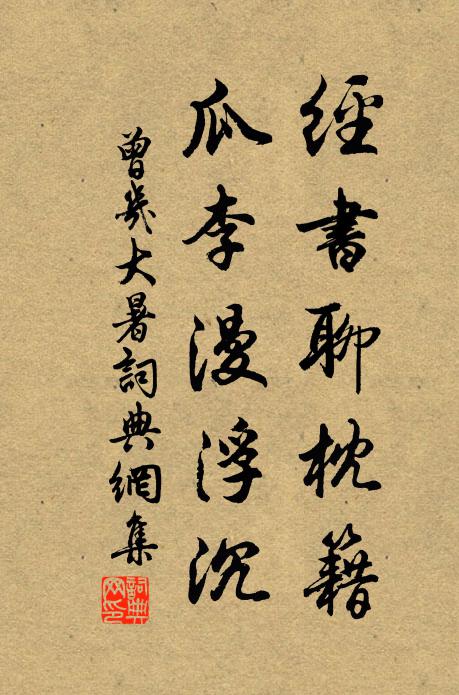 經書聊枕籍
瓜李漫浮沉
曾幾大暑詞典網集
詞典网印